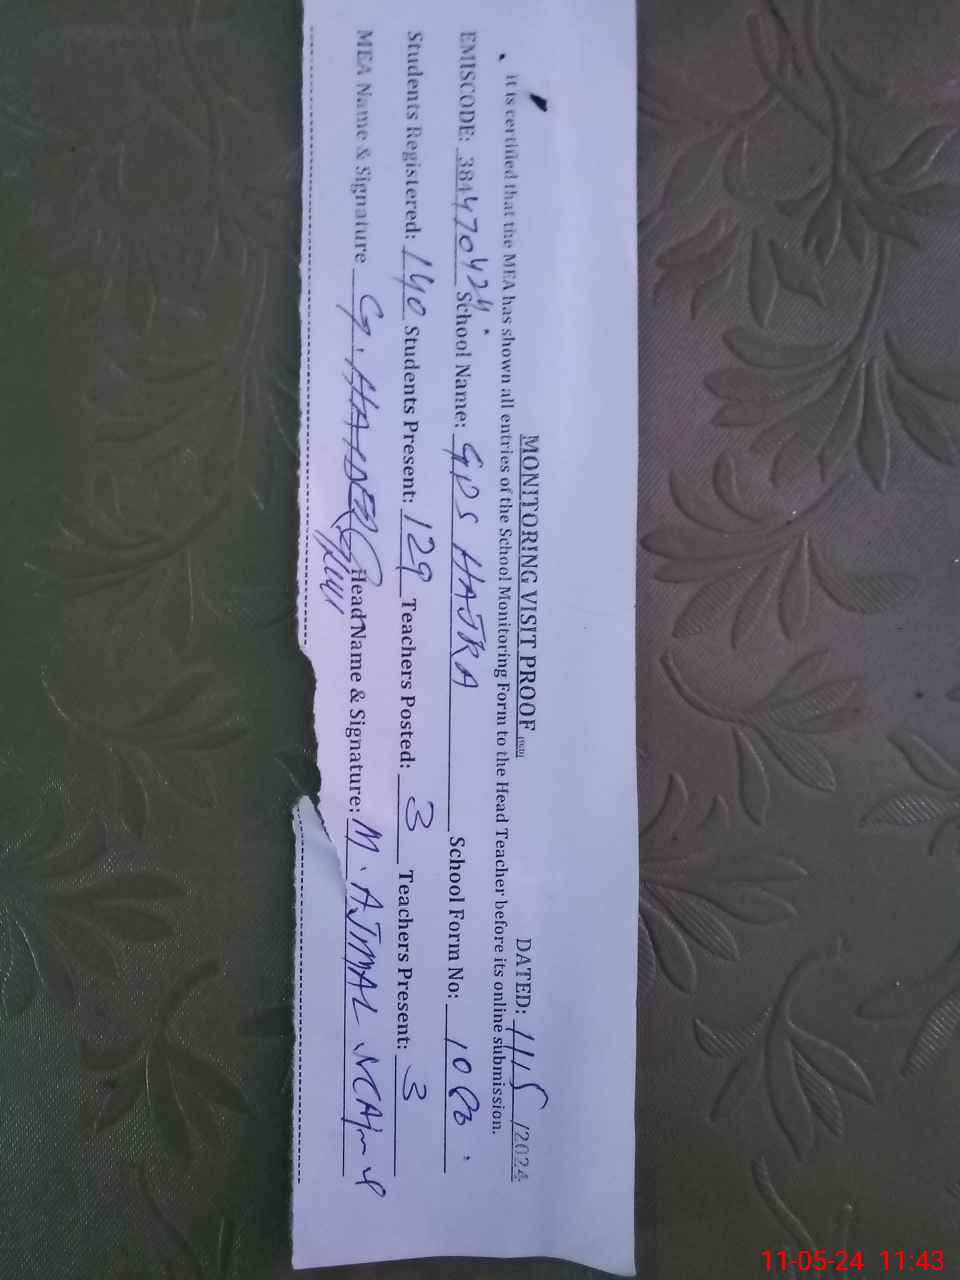 MONITORING VISIT PROOF (SED) DATED: 11/5/2024
it is certified that the MEA has shown all entries of the School Monitoring Form to the Head Teacher before its online submission.
EMISCODE: 38447042 School Name: GPS HAJRA School Form No:
Students Registered: 140 Students Present: 129 Teachers Posted: 3 Teachers Present: 3
MEA Name & Signature G. HAIDER Head Name & Signature: M. AJMAL
11-05-24 11:43